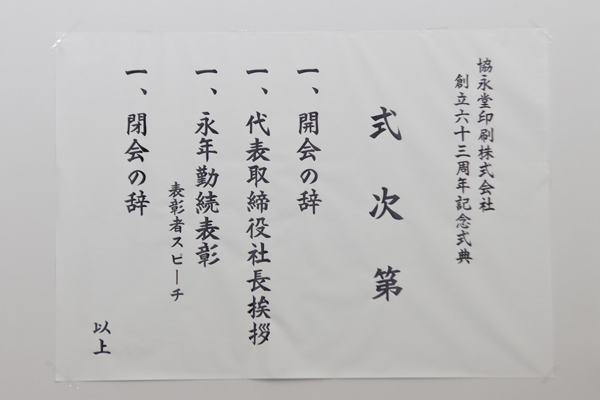 協永堂印刷株式会社
創立六十三周年記念式典
式次第
一、開会の辞
一、代表取締役社長挨拶
一、永年勤続表彰
表彰者スピーチ
一、閉会の辞
以上